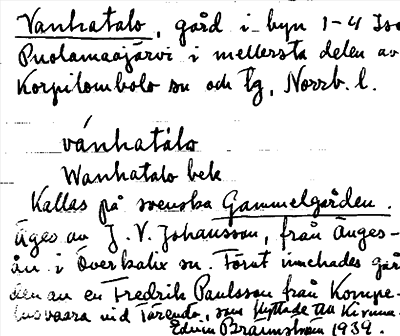 Vanhatalo, gård i byn 1-4 Iso
Puolamaajärvi i mellersta delen av
Korpilombolo sn och tg, Norrb. l.
vánhatàlo
Wanhatalo bek
Kallas på svenska Gammelgården.
Äges av J. V. Johansson, från Änges-
ån i Överkalix sn. Förut innehades går
den av en Fredrik Paulsson från Kompe-
lusvaara vid Tärendö, som flyttade till Kinna-
Edvin Brännström 1939.